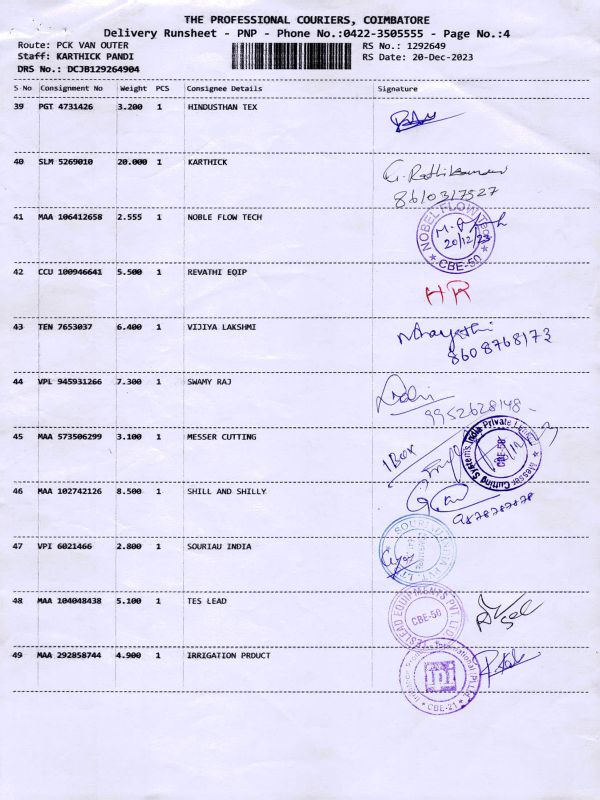 THE PROFESSIONAL COURIERS, COIMBATORE
Delivery Runsheet - PNP - Phone No.:0422-3505555 - Page No.:4
Route: PCK VAN OUTER RS No.: 1292649
Staff: KARTHICK PANDI RS Date: 20-Dec-2023
DRS No.: DCJB129264904
S No Consignment No Weight PCS Consignee Details Signature
39 PGT 4731426 3.200 1 HINDUSTHAN TEX
40 SLM 5269010 20.000 1 KARTHICK
G. Rathikumar
8610317527
41 MAA 106412658 2.555 1 NOBLE FLOW TECH
NOBEL FLOW TECH
20/12/23
* CBE-50 *
42 CCU 100946641 5.500 1 REVATHI EQIP
HR
43 TEN 7653037 6.400 1 VIJIYA LAKSHMI
8608768173
44 VPL 945931266 7.300 1 SWAMY RAJ
9952628148
45 MAA 573506299 3.100 1 MESSER CUTTING
1 Box
Messer Cutting Systems India Private Limited
CBE-50
46 MAA 102742126 8.500 1 SHILL AND SHILLY
9878787878
47 VPI 6021466 2.800 1 SOURIAU INDIA
SOURIAU INDIA PVT. LTD
48 MAA 104048438 5.100 1 TES LEAD
TESLEAD EQUIPMENTS PVT. LTD.
CBE-50
49 MAA 292858744 4.900 1 IRRIGATION PRDUCT
Irrigation Products International P.Ltd.
* CBE-21 *